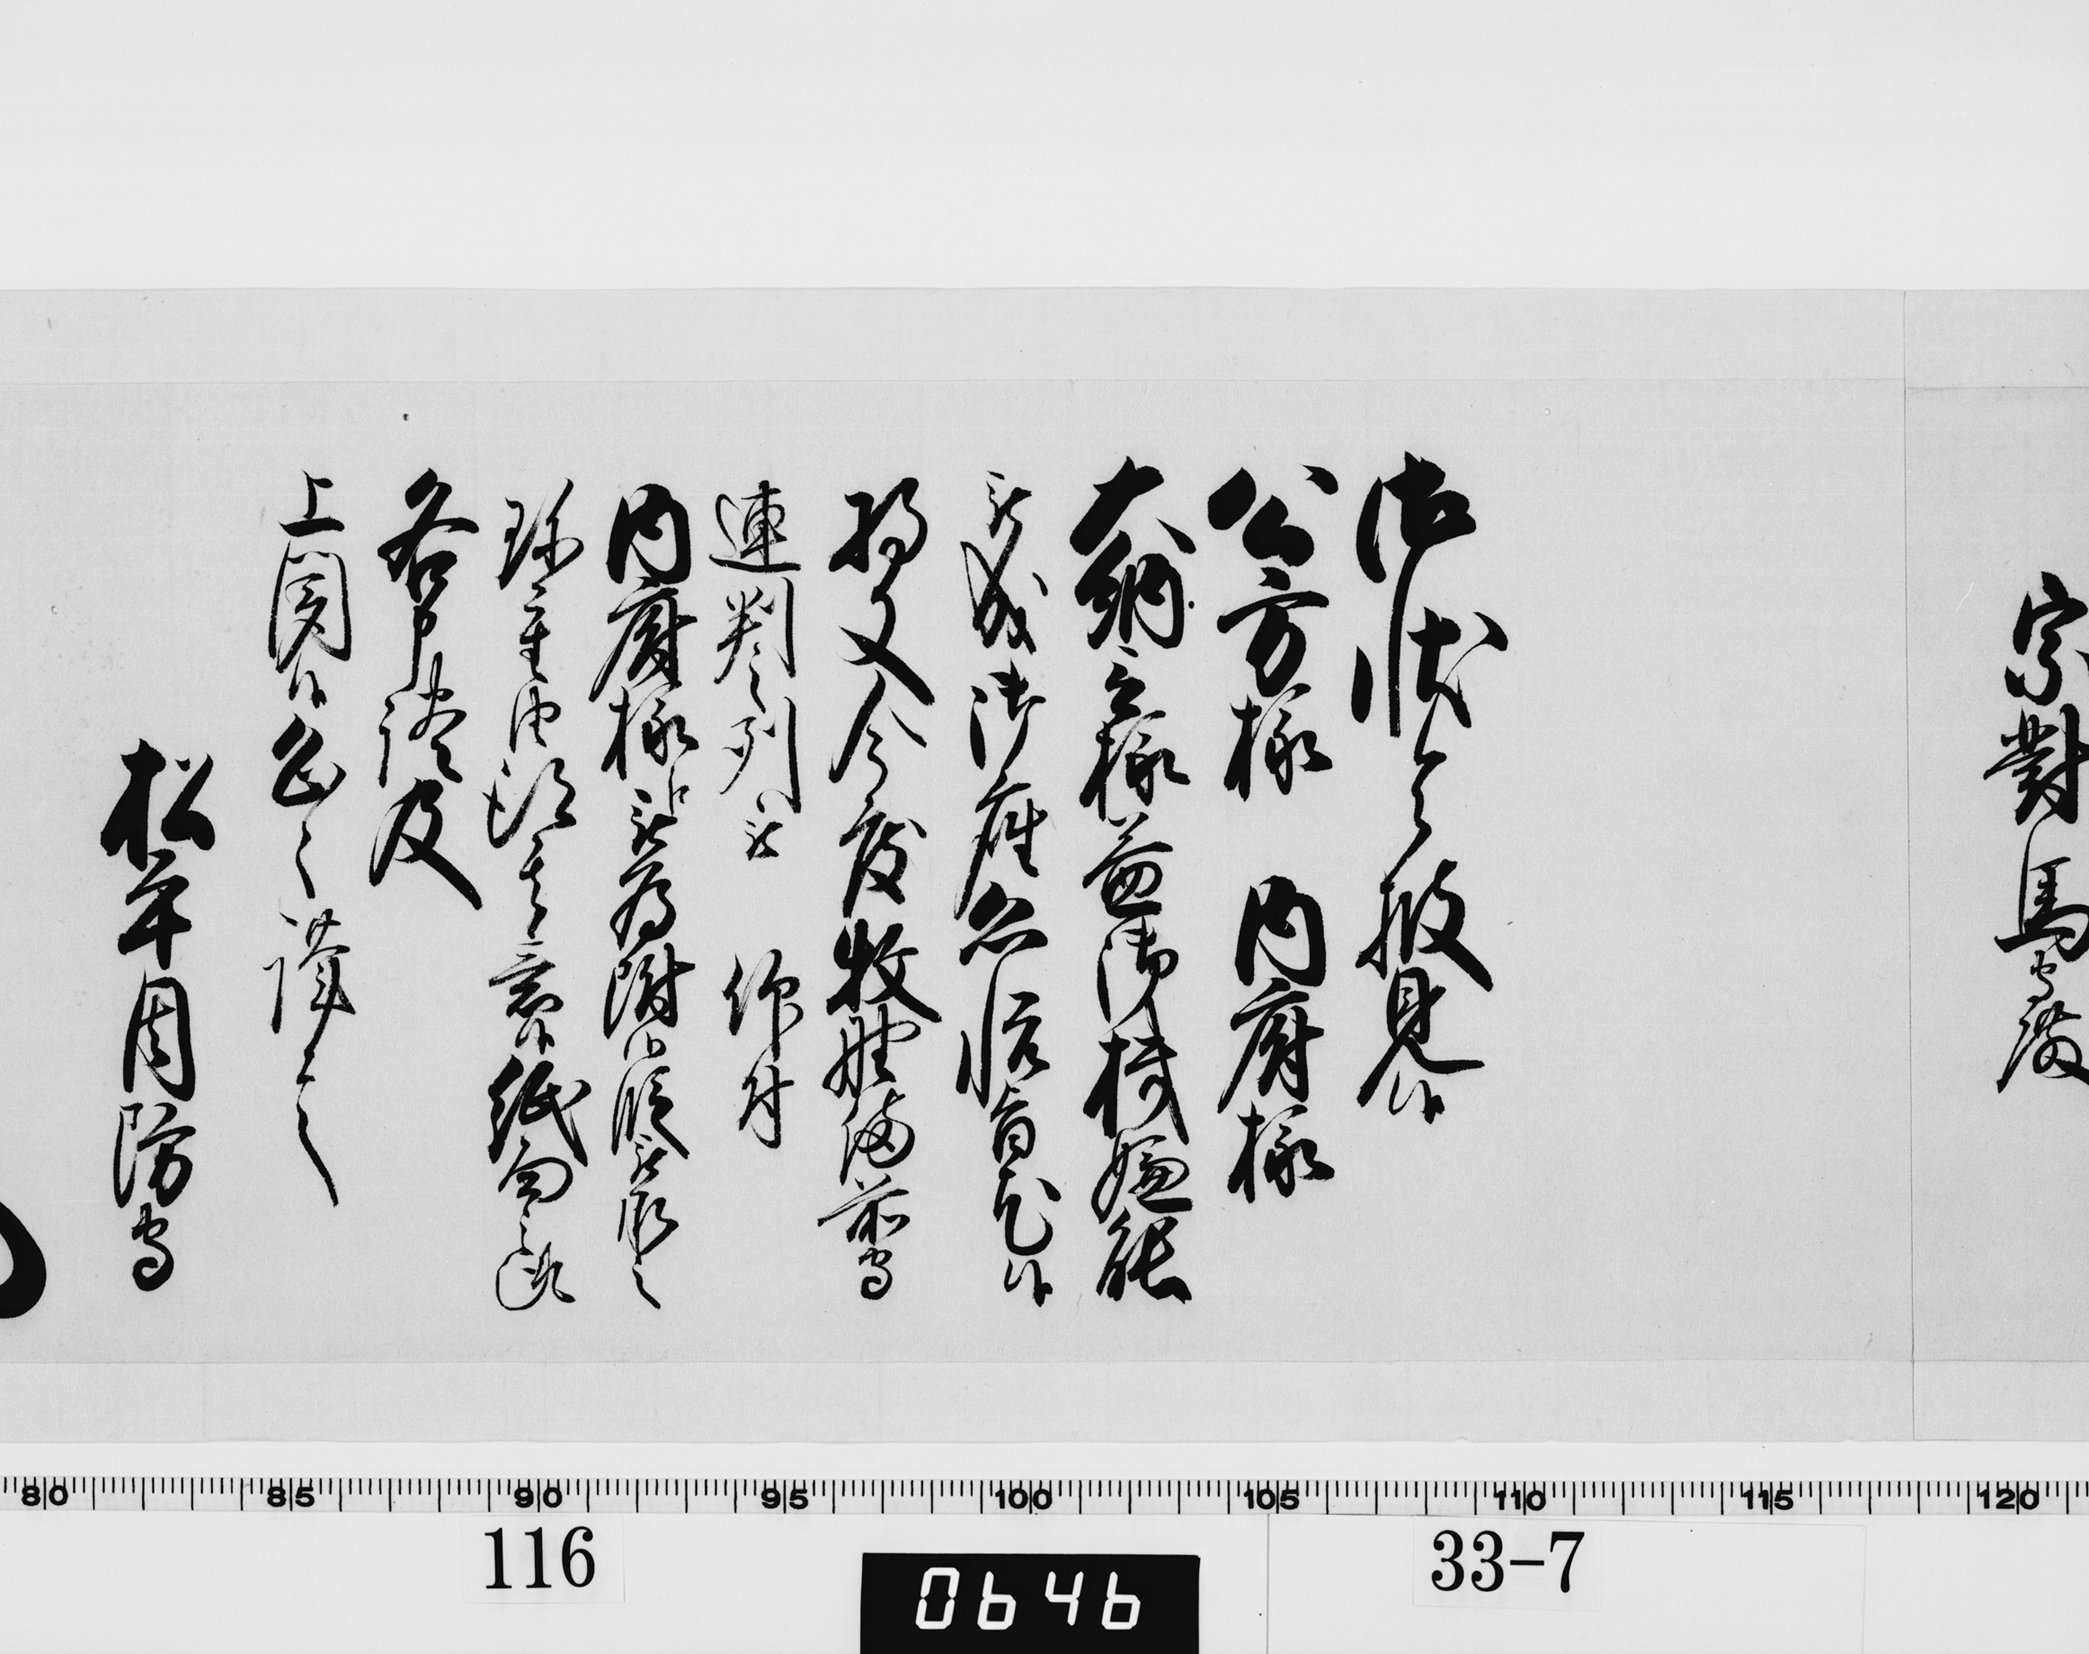 宗對馬守殿
御状令披見候
公方様　内府様
大納言様益御機嫌能
被成御座恐悦旨尤候
将又今度牧野備前守
連判之列被　仰付
内府様被為附候段被承之
珎重由得其意候紙面之趣
各申談及
上聞候恐々謹言
松平周防守
80 85 90 95 100 105 110 115 120
116
33-7
0646